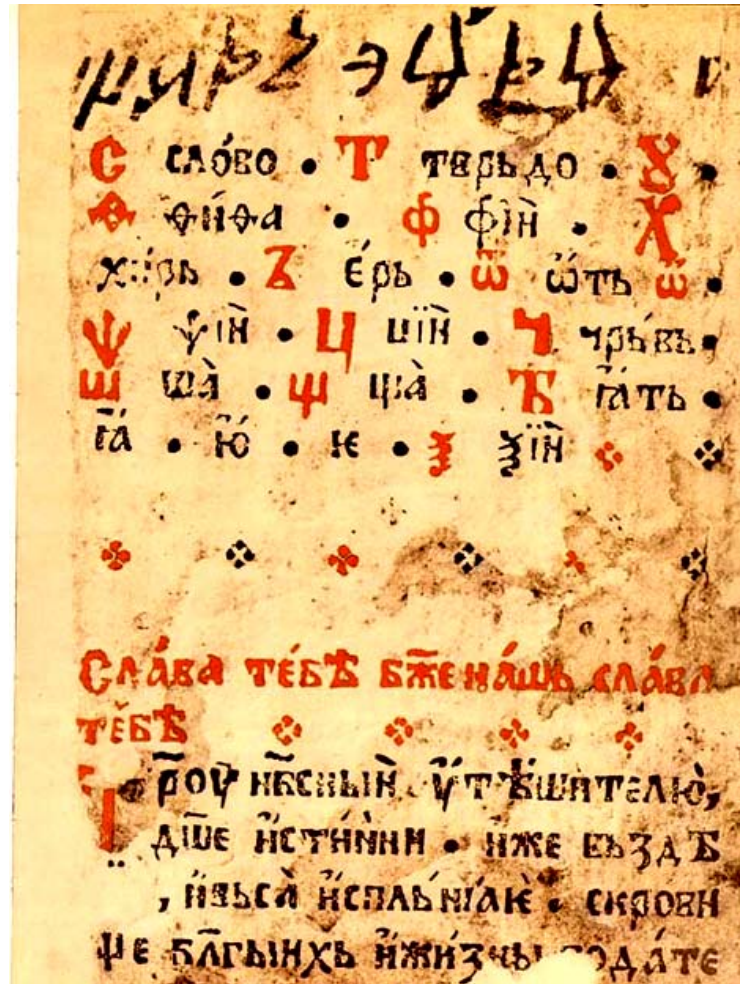 С сло́во • Т терьдо • Ꙋ •
Ѳ ѳи́ѳа • Ф фїѝ • Х
хи́рь • Ъ е́рь • Ѿ ѿть ѿ •
Ѱ ѱїѝ • Ц цїѝ • Ч чрь́въ •
Ш ша̀ • Щ ща̀ • Ѣ ꙗ҆́ть •
ꙗ҆̀ • ю҆̀ • ѥ • Ѯ ѯїѝ
Сла́ва те́бѣ бж҃е на́шь сла́ва
те́бѣ
Ц҃роу нб҃сныѝ ѹ҆тѣшителю̀,
дш҃е и҆сти́нни • и҆́же вьздѣ
, и҆вьса̀ и҆спль́нꙗѥ̀ • скрови
ще бл҃гыихь и҆жи́зны пода́те